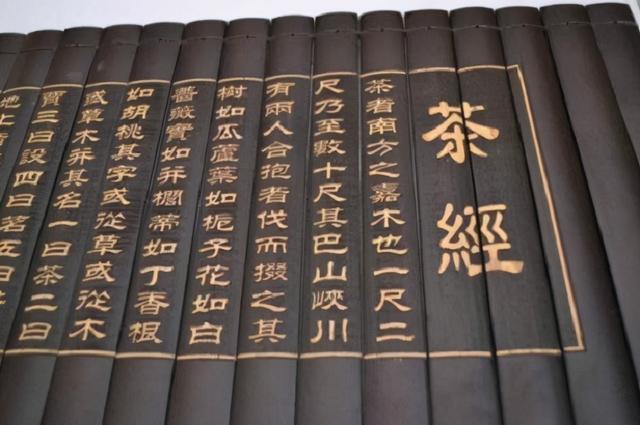 茶經
茶者南方之嘉木也一尺二
尺乃至數十尺其巴山峽川
有兩人合抱者伐而掇之其
樹如瓜蘆葉如梔子花如白
薔薇實如并櫚蒂如丁香根
如胡桃其字或從草或從木
或草木并其名一曰茶二曰
三曰設四曰茗五曰
地上者